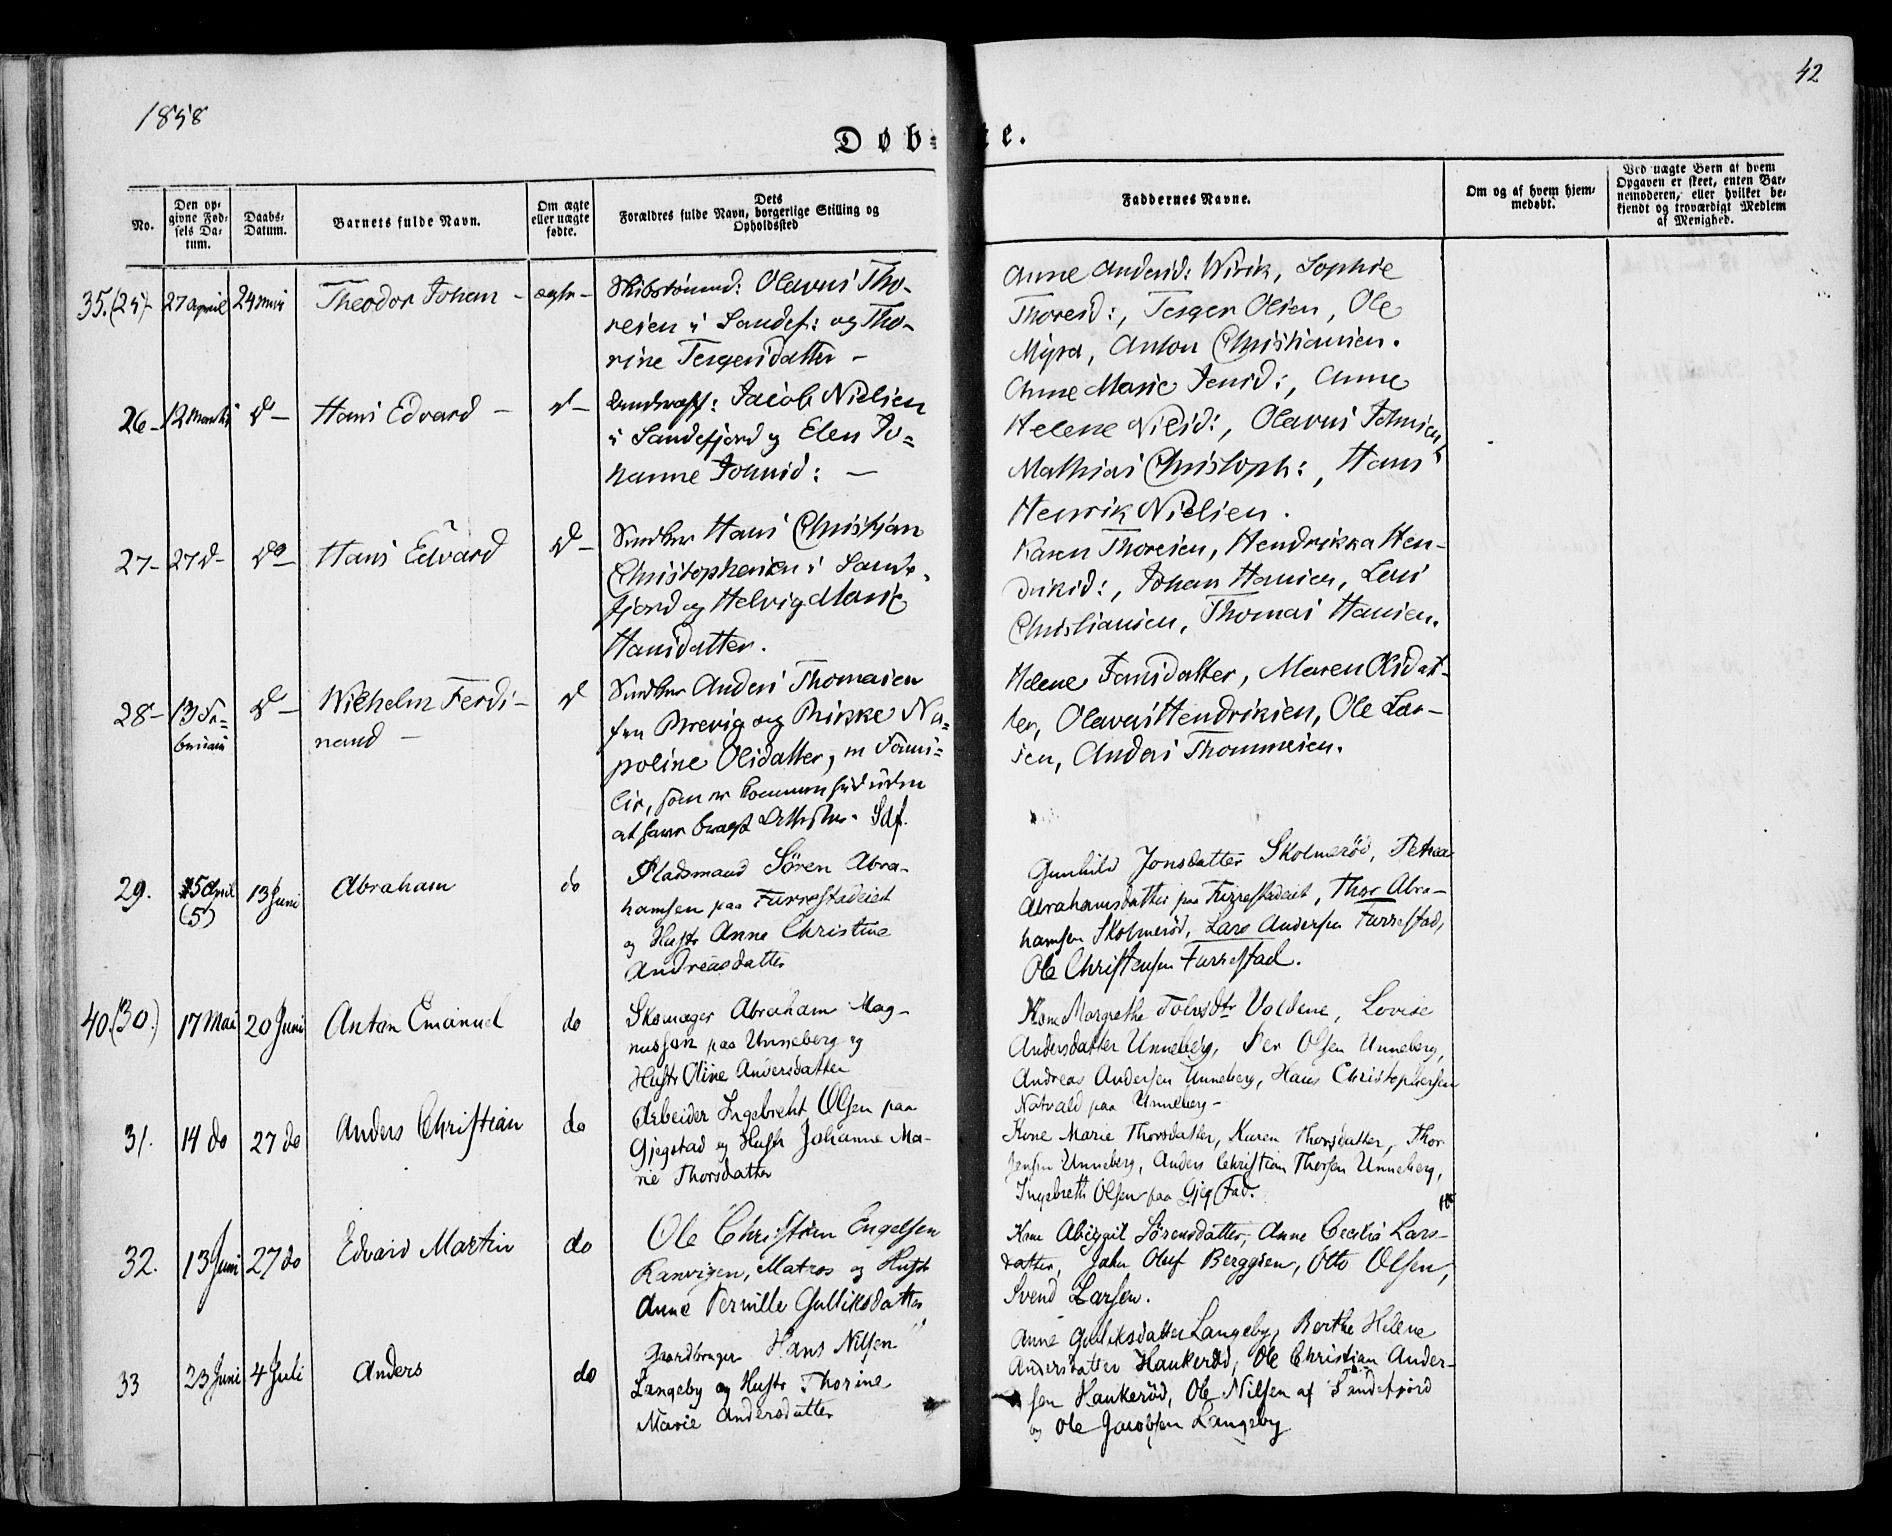 1858
42
Døb-
te.
No.
Den op-
givne Fød-
sels Da-
tum.
Daabs-
Datum.
Barnets fulde Navn.
Om ægte
eller uægte
fødte.
Dets
Forældres fulde Navn, borgerlige Stilling og
Opholdssted
Faddernes Navne.
Om og af hvem hjem-
medøbt.
Ved uægte Børn af hvem
Opgaven er skeet, enten Bar-
nemoderen, eller hvilket be-
kjendt og troværdigt Medlem
af Menighed.
35.(25)- 27 April 24 Mai Theodor Johan - ægte -
Olavus Tho-
resen i Sandef: og Tho-
rine Tesgersdatter -
Anne Andersd: Wirik, Sophie
Thoresd:, Tesger Olsen, Ole
Myra, Anton Christiansen.
26- 12 Martii do - Hans Edvard - do -
Jacob Nielsen
i Sandefjord og Elen Jo-
hanne Johnsd: -
Anne Marie Jensd:, Anne
Helene Nilsd:, Olavus Johnsen,
Mathias Christoph:, Hans
Henrik Nielsen.
27- 27 do - do - Hans Edvard do -
Snedker Hans Christian
Christophersen i Sande-
fjord og Helvig Marie
Hansdatter.
Karen Thoresen, Hendrikka Hen-
driksd:, Johan Hansen, Lars
Christiansen, Thomas Hansen.
28- 13 Fe-
bruarii do - Wilhelm Ferdi-
nand - do
Snedker Anders Thomasen
fra Brevig og Rikke Na-
poline Olsdatter, en Fami-
lie, som er kommen hid uden
at have bragt Attester. Sdf.
Helene Jansdatter, Maren Olsdat-
ter, Olavus Hendriksen, Ole Lar-
sen, Anders Thommesen.
29. 15 April
(5) 13 Juni Abraham do
Pladsmand Sören Abra-
hamsen paa Furrestadeiet
og Hustr Anne Christine
Andreasdatter
Gunhild Jonsdatter Skolmeröd, Petrea
Abrahamsdatter paa Furrestadeiet, Thor Abra-
hamsen Skolmeröd, Lars Andersen Furrestad,
Ole Christensen Furrestad.
40.(30.) 17 Mai 20 Juni Anton Emanuel do
Skomager Abraham Mag-
nussen paa Unneberg og
Hustr Oline Andersdatter
Kone Margrethe Tolvsdtr Valdene, Lovise
Andersdatter Unneberg, Per Olsen Unneberg,
Andreas Andersen Unneberg, Hans Christophersen
Natvald paa Unneberg -
31. 14 do 27 do Anders Christian do
Arbeider Ingebreht Olsen paa
Gjegstad og Hustr Johanne Ma-
rie Thorsdatter
Kone Marie Thorsdatter, Karen Thorsdatter, Thor
Jensen Unneberg, Anders Christian Thorsen Unneberg,
Ingebreth Olsen paa Gjegstad.
32. 13 Juni 27 do Edvard Martin do
Ole Christian Engelsen
Ranvigen, Matros og Hustr
Anne Pernille Gulliksdatter
Kone Abiggil Sörensdatter, Anne Cecelia Lars-
datter, John Oluf Berggren, Otto Olsen,
Svend Larsen.
33 23 Juni 4 Juli Anders do
Gaardbruger Hans Nilsen
Langeby og Hustr Thorine
Marie Andersdatter
Anne Gulliksdatter Langeby, Berthe Helene
Andersdatter Haukeröd, Ole Christian Ander-
sen Haukeröd, Ole Nilsen af Sandefjord
og Ole Jacobsen Langeby